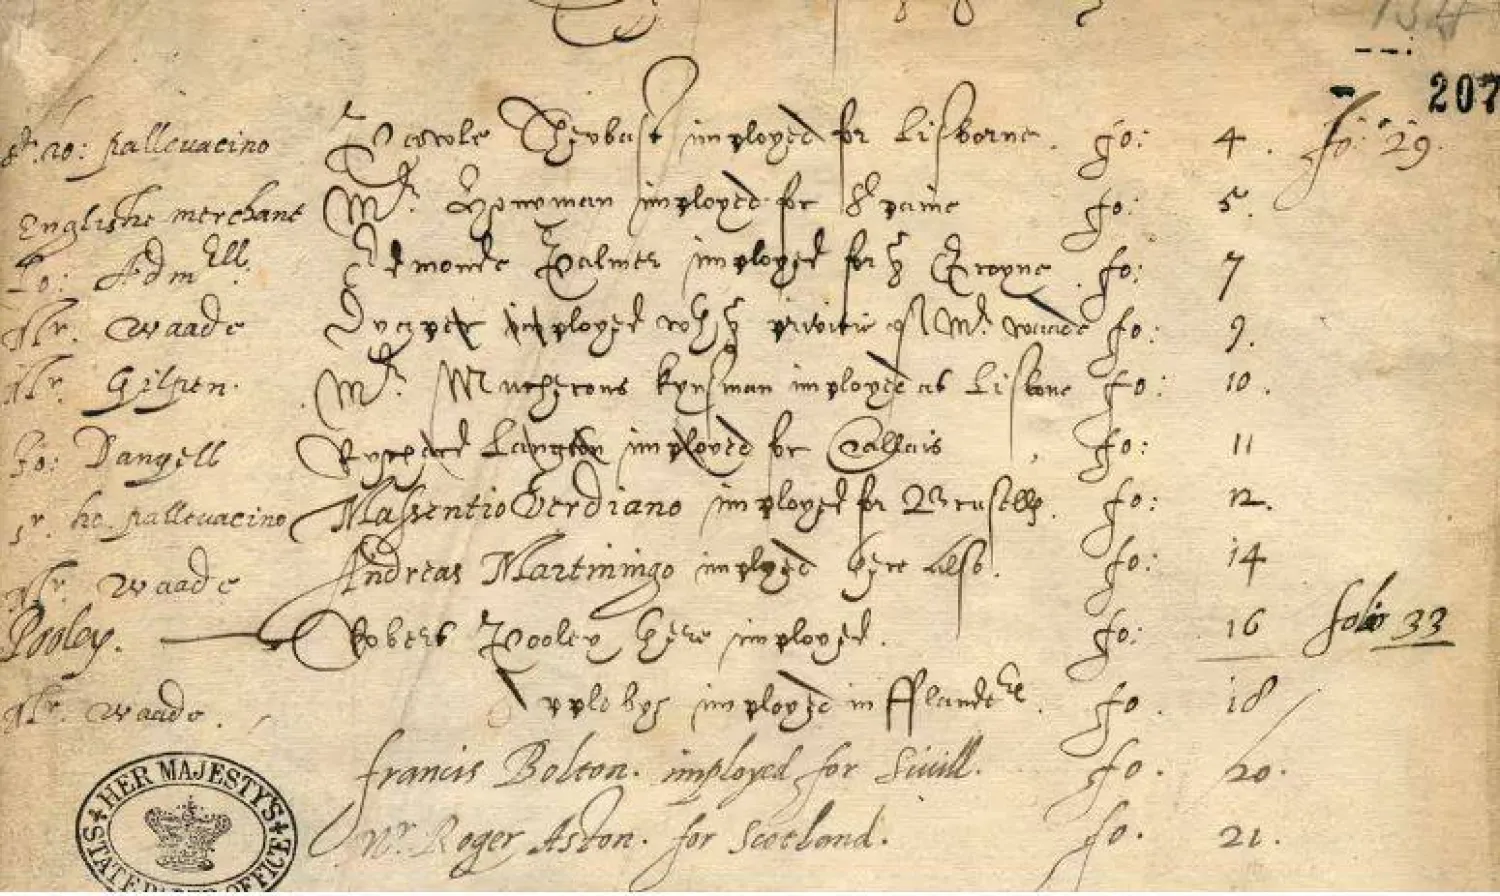 207
Sr. Ho: pallevacino Pawle Theobast imployed for Lisborne. fo: 4. fo: 29.
Englishe merchant Mr. Honyman imployed for Spaine fo: 5.
Lo: Admell. Edmonde Palmer imployed for ye Groyne. fo: 7
Mr. waade imployed wth ye privitie of Mr. waade fo: 9.
Mr. Gilpen. Mr. kynsman imployed at Lisbone fo: 10.
Jo: Dangell Rychard Langton imployed for Callais fo: 11
Sr. ho. pallevacino Massentio Verdiano imployed for Brusells. fo: 12.
Mr. waade Andreas Martiningo imployed here also. fo: 14
Pooley. Robert Pooley here imployed. fo: 16 folio 33
Mr. waade. imployed in fflanders. fo. 18
francis Bolton. imployed for Sivill. fo. 20.
Mr Roger Aston. for Scotland. fo. 21.
HER MAJESTY'S STATE PAPER OFFICE